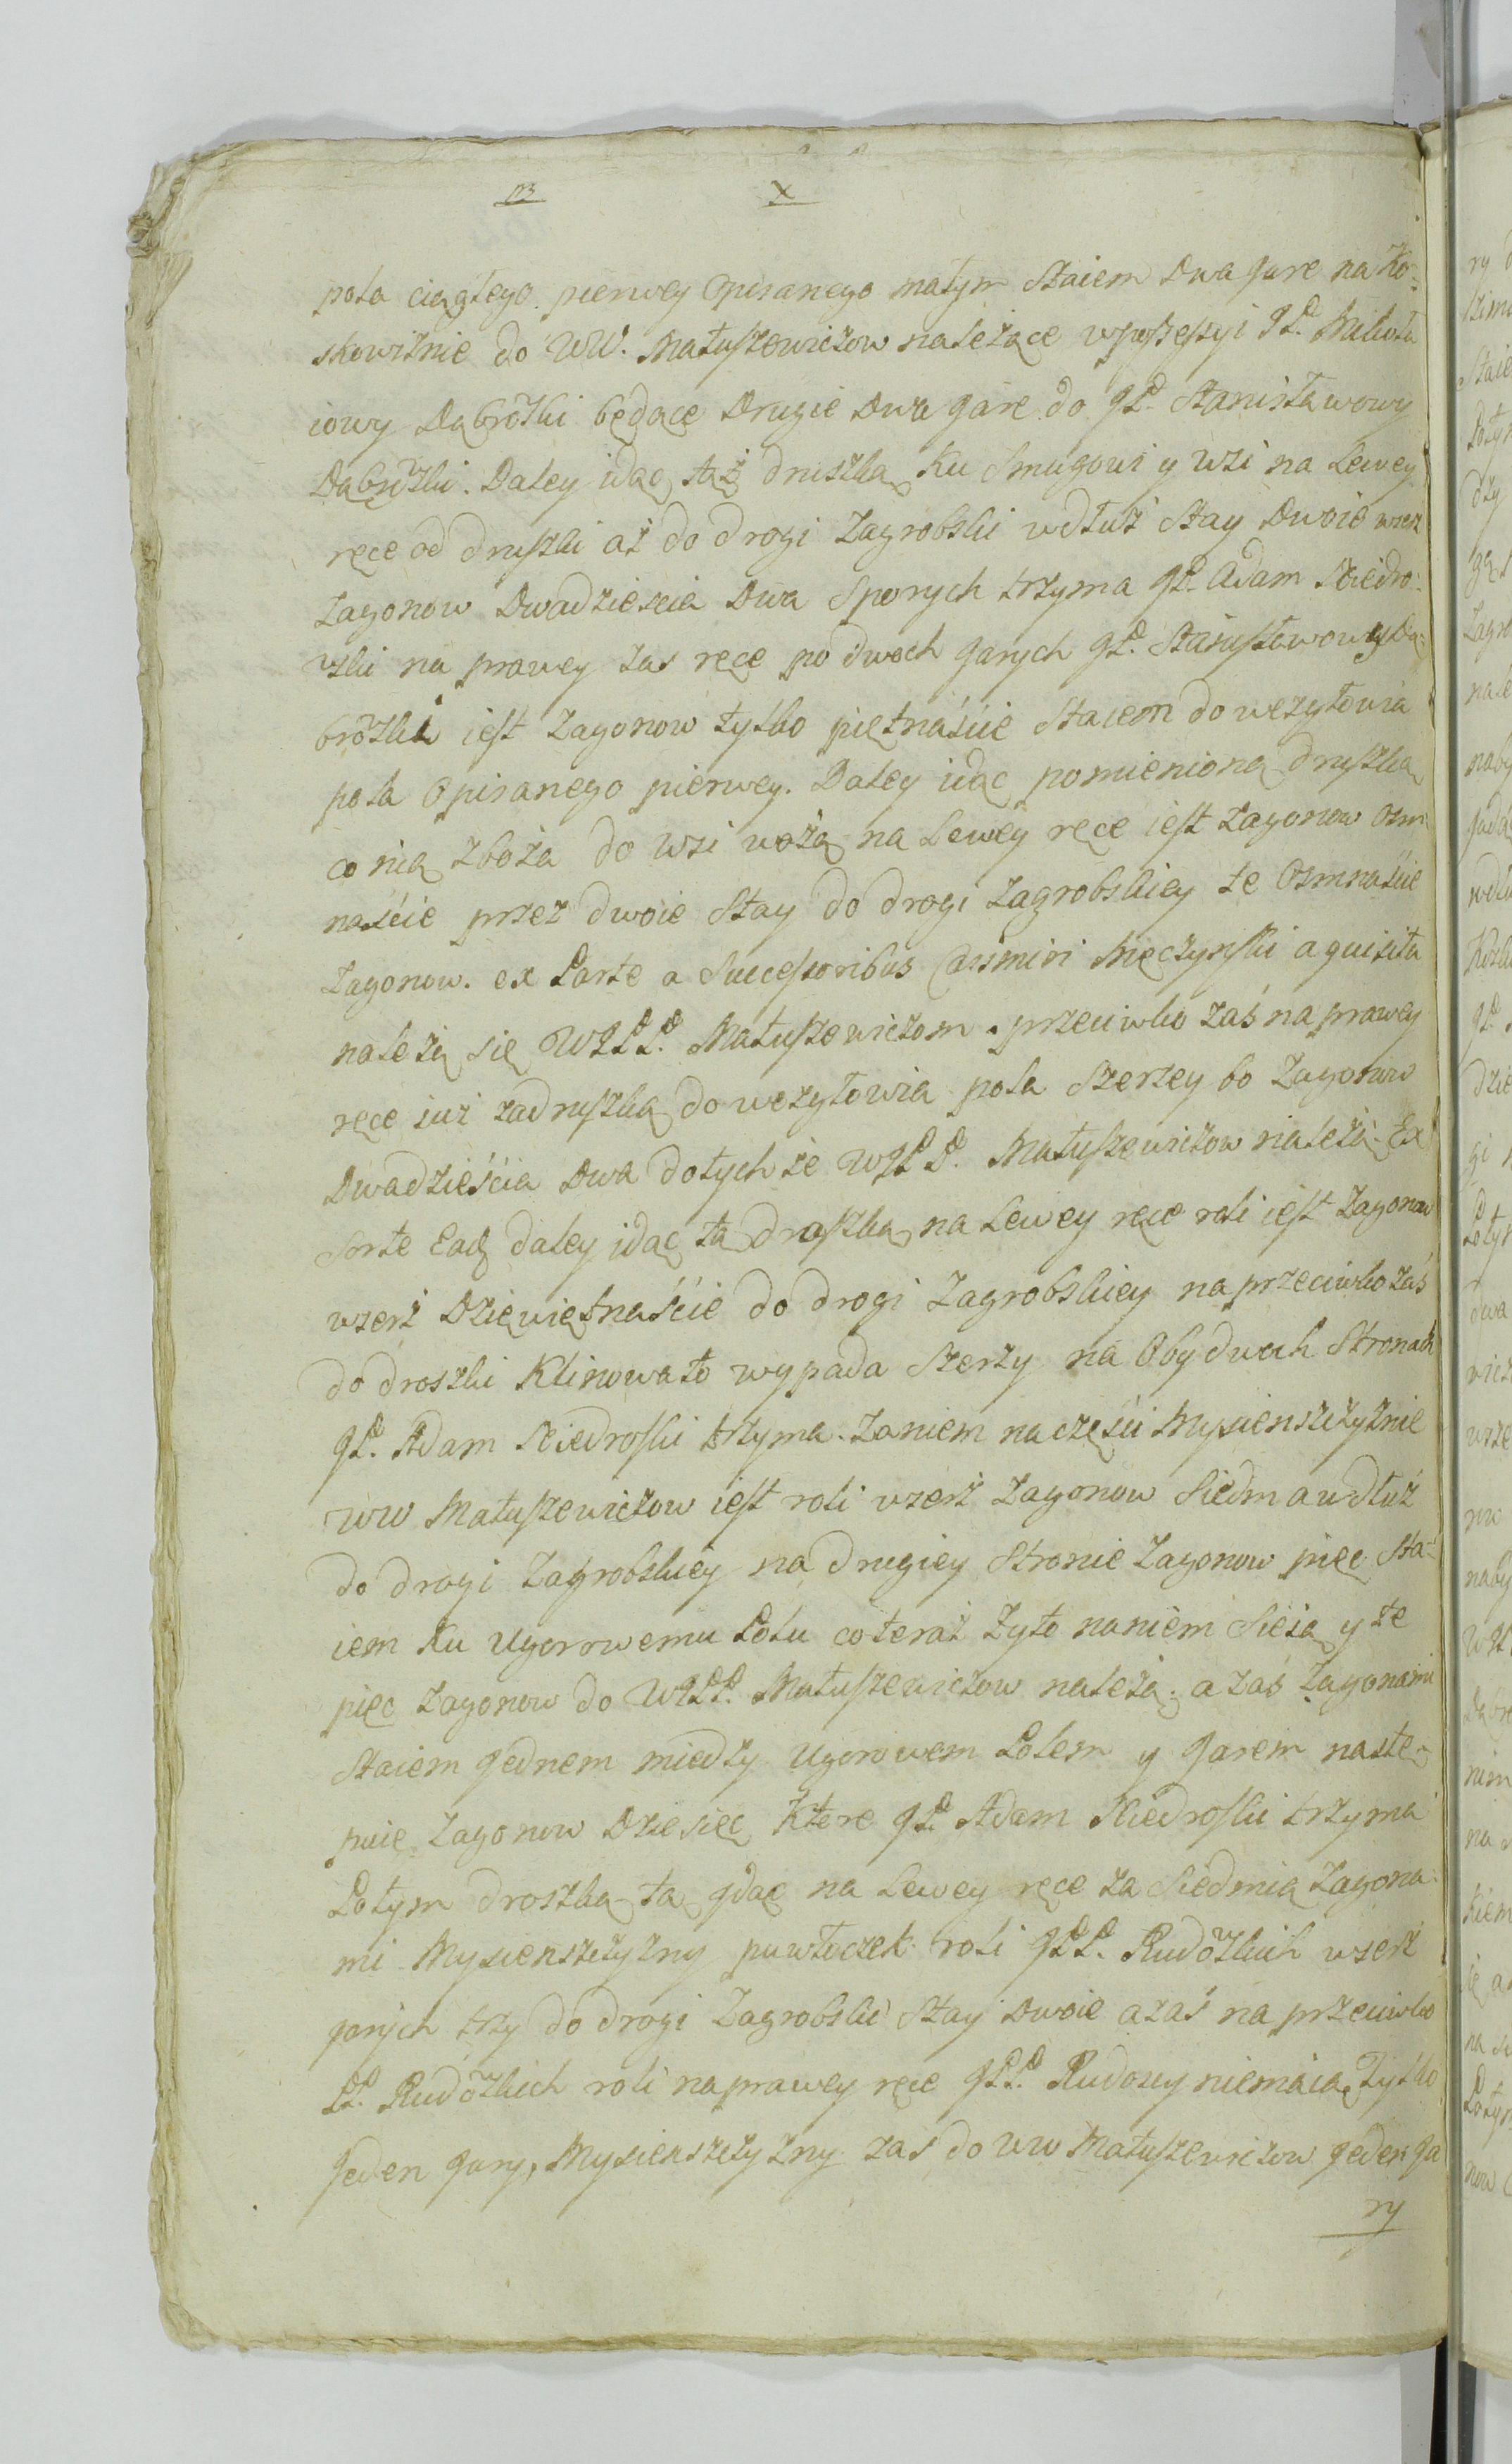 113 X
pola ciągłego pierwey Opisanego małym Staiem Dwa Jare na Ko-
skowiznie do WW. Matuszewiczow należące w possessyi JP. Mikoła
iowy Dąbrożki będące Drugie Dwa Jare do JP. Stanisławowy
Dąbrożki. Daley idąc tąż druszką Ku Smugowi y wsi na Lewey
ręce od druszki aż do drogi Zagrobski wdłuż Stay Dwoie wszerz
Zagonow Dwadziescia Dwa Sporych trzyma JP. Adam Niedro-
wski na prawey zas ręce po dwoch Jarych JP. Stanisławowy Dą-
brożki iest Zagonow tylko piętnaście Staiem do wezgłowia
pola Opisanego pierwey. Daley idąc pomienioną druszką
co nią zboża do wsi wożą na Lewey ręce iest Zagonow osm-
naście przez dwoie Stay do drogi Zagrobskiey te Osmnaście
Zagonow. ex Parte a Successoribus Casimiri Mięczynski aquisita
należą się WJPP. Matuszewiczom. przeciwko zaś na prawey
ręce iuż za druszką do wezgłowia pola Szerzey bo Zagonow
Dwadzieścia Dwa do tychże WJPP. Matuszewiczow należą. Ex
Sorte Ead daley idąc tą druszką na Lewey ręce roli iest Zagonow
wszerz Dziewiętnaście do drogi Zagrobskiey na przeciwko zaś
do droszki Klinowato wypada Szerzy na Obydwuch Stronach
JP. Adam Niedroski trzyma. Zaniem na częsci Mysienszczyznie
WW Matuszewiczow iest roli wszerz Zagonow Siedm a wdłuż
do drogi Zagrobskiey na drugiey Stronie Zagonow pięc Sta-
iem Ku Ugorowemu Polu co teraz Zyto naniem Sieią y te
pięc Zagonow do WJPP. Matuszewiczow należą. a zaś Zagonami
Staiem Jednem miedzy Ugorowem Polem y Jarem nastę-
puie Zagonow Dziesięc Ktore JP. Adam Niedroski trzyma
Potym droszką tą Jdąc na Lewey ręce za Siedmią Zagona-
mi Mysienszczyzny puwłoczek roli JPP. Rudozkich wszerz
Jarych trzy do drogi Zagrobski Stay Dwoie a zaś na przeciwko
PP. Rudozkich roli na prawey ręce JPP. Rudoscy niemaią Tylko
Jeden Jary, Mysienszczyzny zas do WW Matuszewiczow Jeden Ja
ry